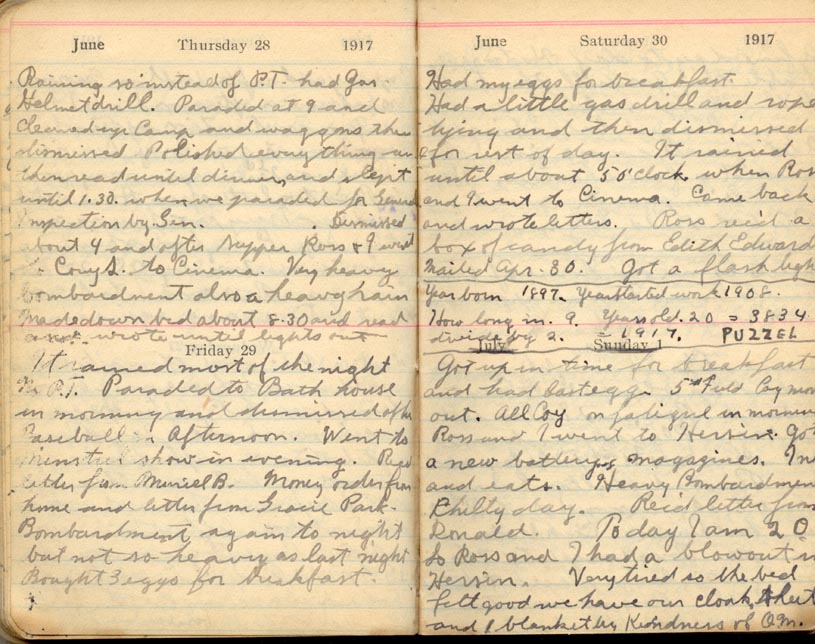 June Thursday 28 1917
Raining so instead of P.T. had Gas
Helmet drill. Paraded at 9 and
cleaned up Camp and waggons then
dismissed Polished everything
then read until dinner, and slept
until 1.30. when we paraded for General
Inspection by Gen. . Dismissed
about 4 and after supper Ross & I went
to Cony S. to Cinema. Very heavy
bombardment also a heavy rain
Made down bed about 8.30 and read
and wrote until lights out
Friday 29
It rained most of the night
No P.T. Paraded to Bath house
in morning and dismissed after
Baseball in Afternoon. Went to
Minstrel show in evening. Recd
letter from Muriel B. Money order from
home and letter from Gracie Park.
Bombardment again to night
but not so heavy as last night
Bought 3 eggs for breakfast.
June Saturday 30 1917
Had my eggs for breakfast.
Had a little gas drill and rope
tying and then dismissed
for rest of day. It rained
until about 5 o'clock when Ross
and I went to Cinema. Came back
and wrote letters. Ross rec'd a
box of candy from Edith Edward
Mailed Apr. 30. Got a flash light
Year born 1897. Year started work 1908.
How long in. 9. Years old. 20 = 3834
divide by 2. = 1917. PUZZEL
July Sunday 1
Got up in time for breakfast
and had last egg. 5 Coy
out. All Coy on fatigue in morning
Ross and I went to Hersin. Got
a new battery, magazines.
and eats. Heavy Bombardment
Philly day. Rec'd letter from
Donald. To day I am 20
So Ross and I had a blowout in
Hersin. Very tired so the bed
felt good we have our cloak, sheet
and 1 blanket by Kindness of Q.M.